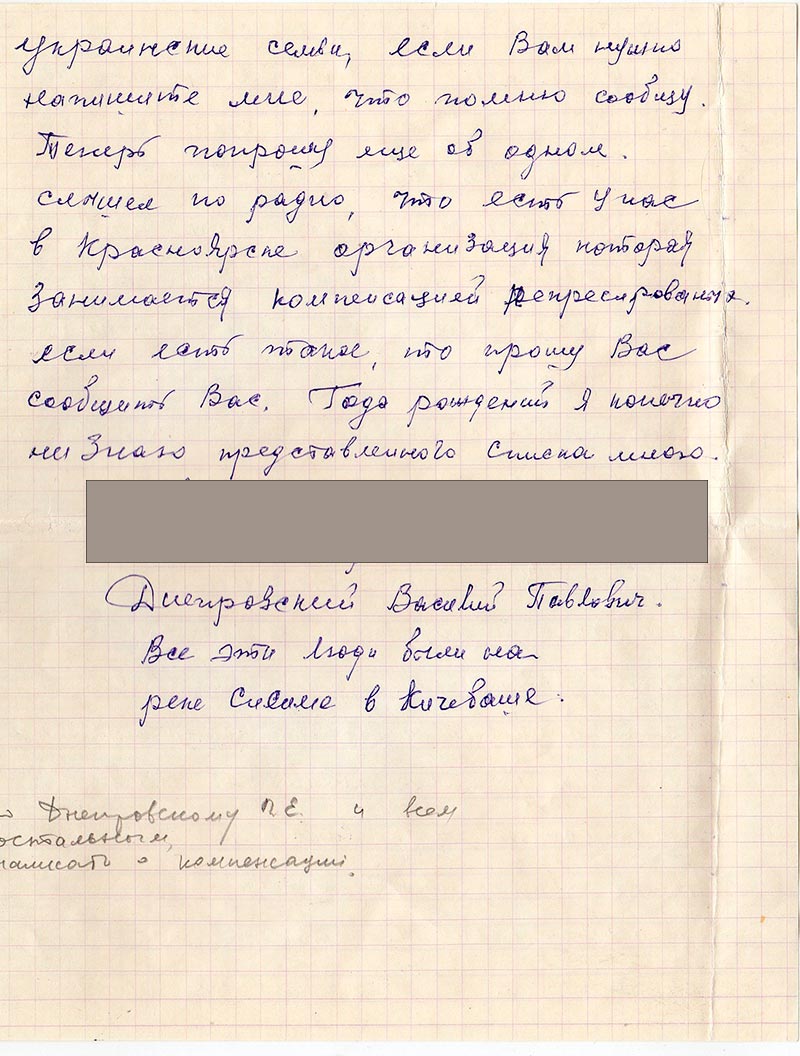 украинские семьи, если Вам нужно
напишите мне, что помню сообщу.
Теперь попрошу еще об одном.
слышел по радио, что есть у нас
в Красноярске организация которая
занимается компенсацией репресированых.
если есть такое, то прошу Вас
сообщить Вас. Года рождений я конечно
ни знаю представленного списка много.
Днепровский Василий Павлович.
Все эти люди были на
реке Сисиме в Кичебаше.
Днепровскому П Е. и всем
остальным,
написать о компенсации.